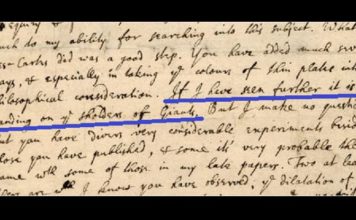 to my ability for searching into this subject. What
Des-Cartes did was a good step. You have added much
ways, & especially in taking yᵉ colours of thin plates into
philosophical consideration. If I have seen further it is
standing on yᵉ sholders of Giants. But I make no
but you have divers very considerable experiments
those you have published, & some it's very probable the
same wth some of those in my late papers. Two at least
I know you have observed, yᵉ dilatation of